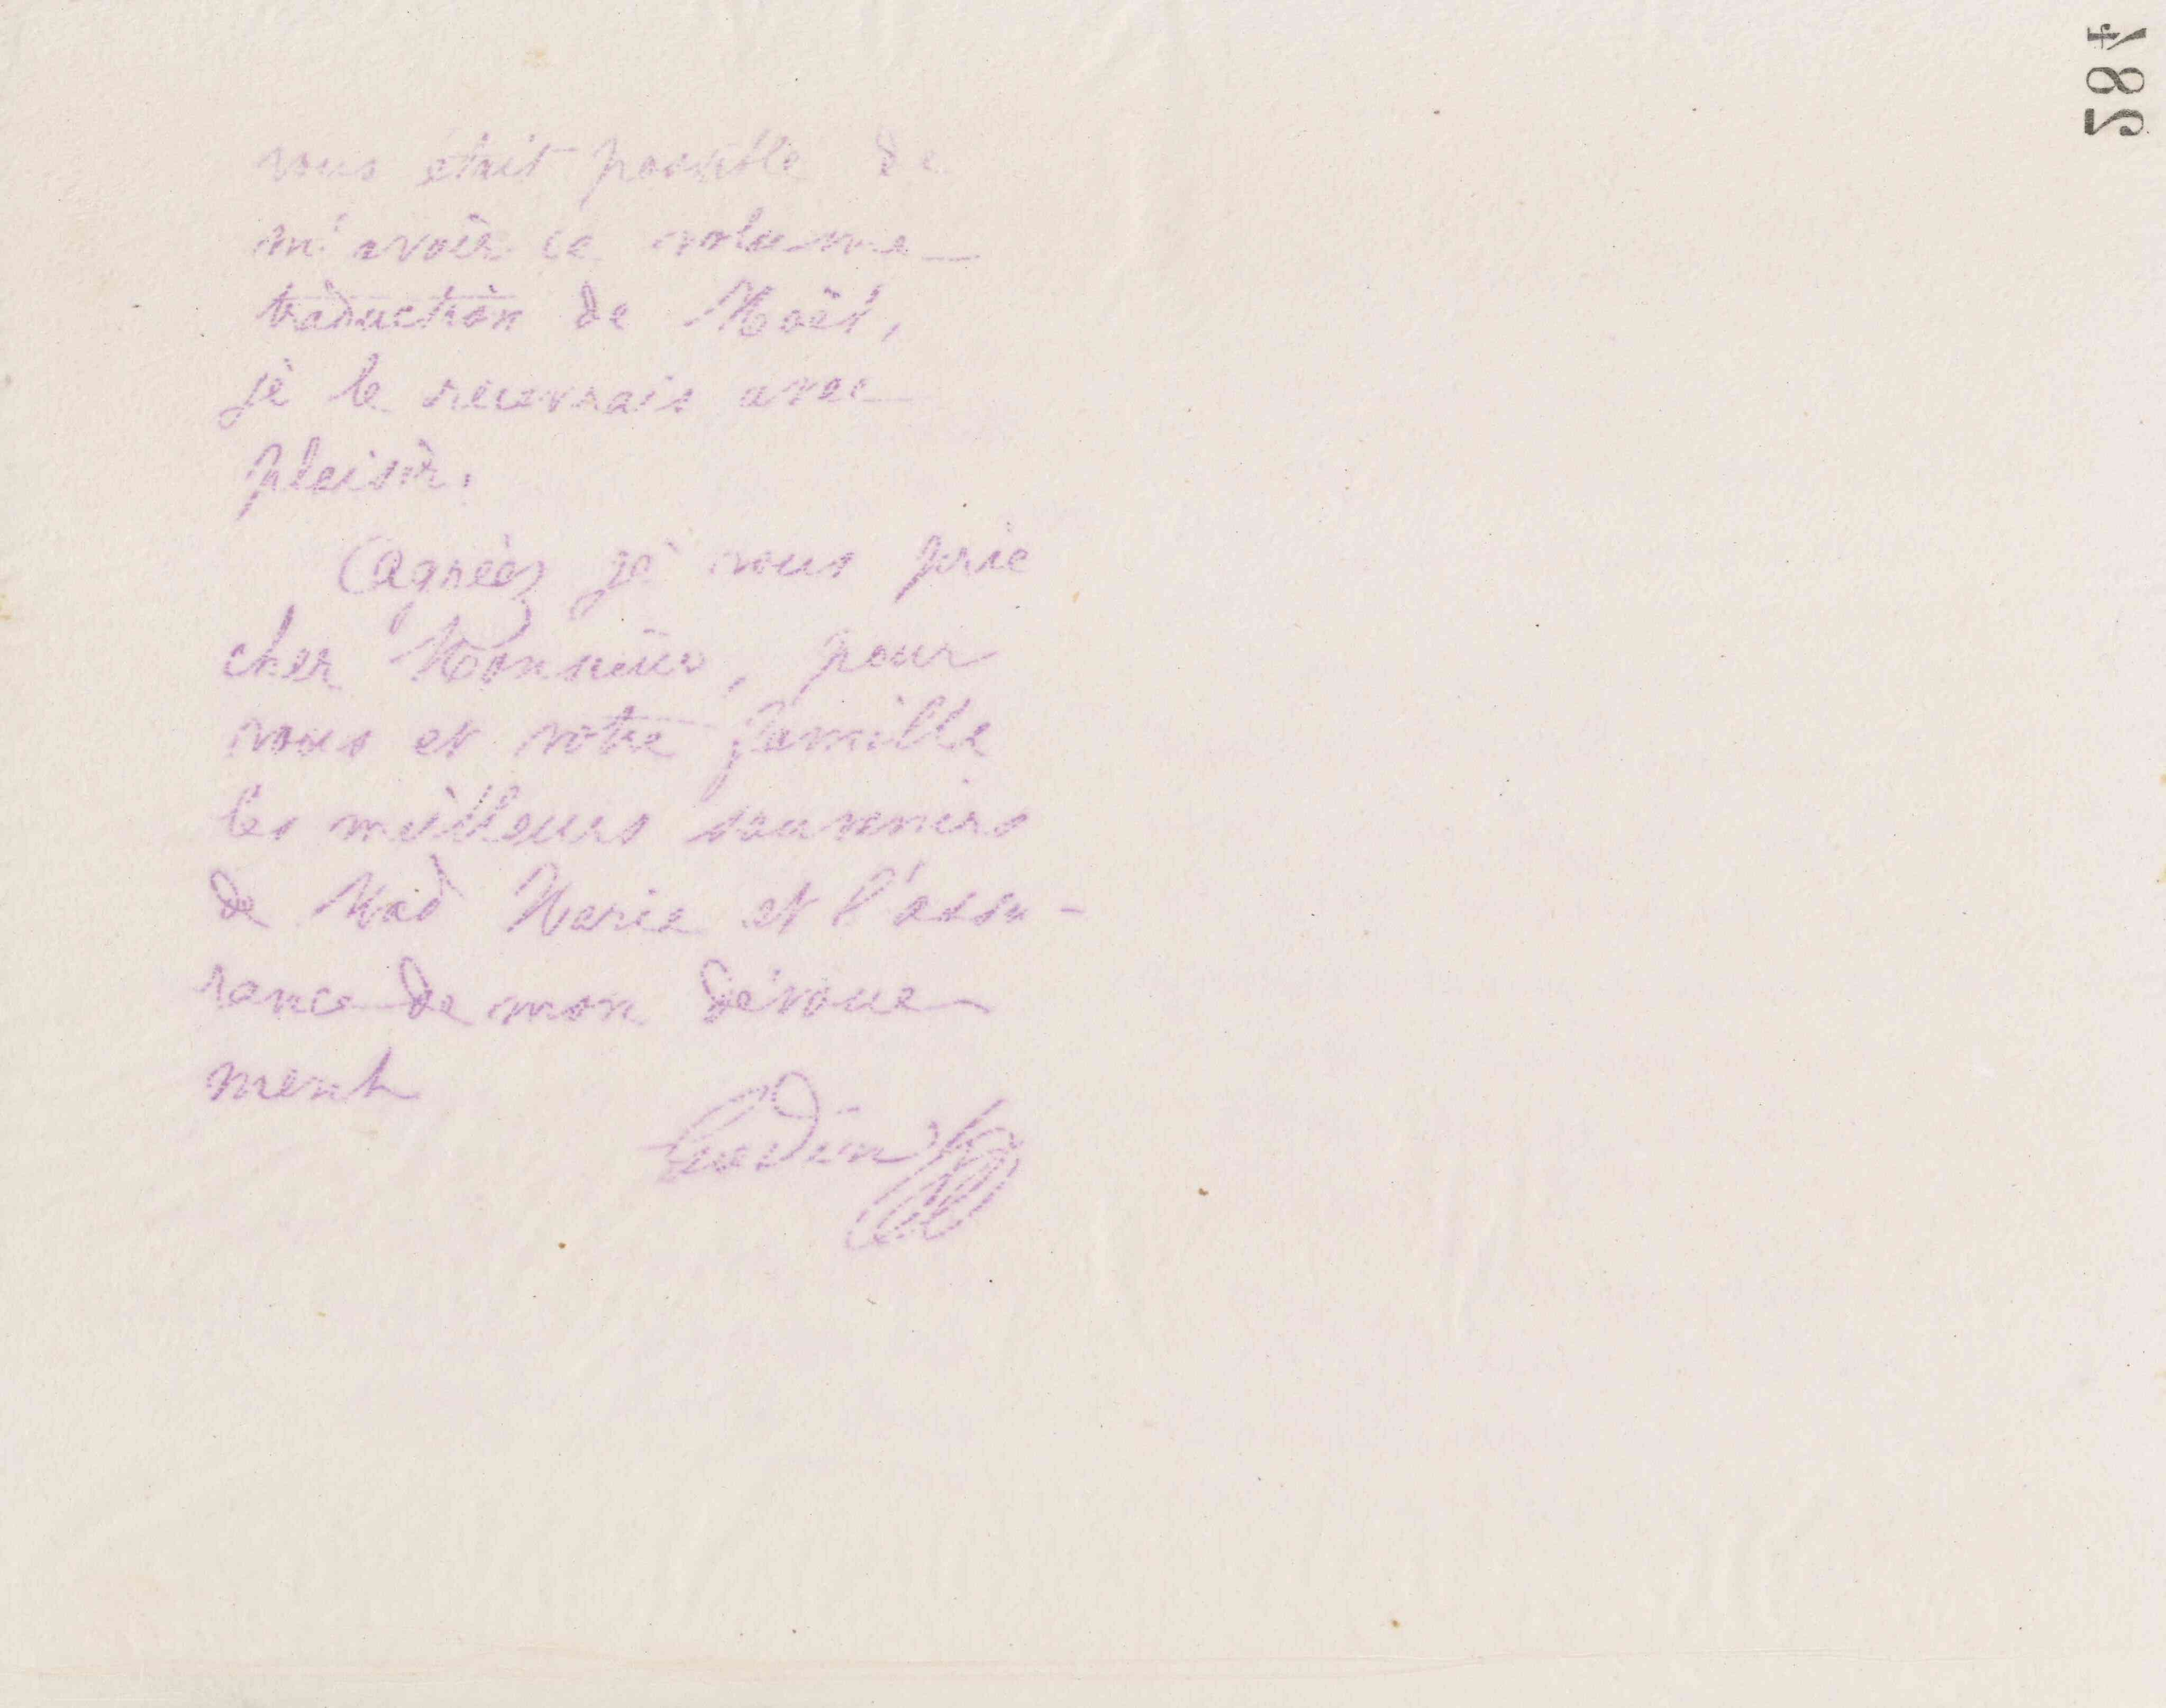 584
vous était possible de
m'avoir ce volume
traduction de Noël,
je le recevrais avec
plaisir.
Agréez je vous prie
cher Monsieur, pour
vous et votre famille
les meilleurs souvenirs
de Mad Marie et l'assu-
rance de mon dévoue
ment
Godin